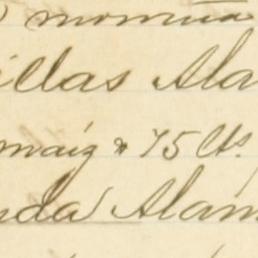 illas Ala
maíz á 75 Cts.
nda Alám